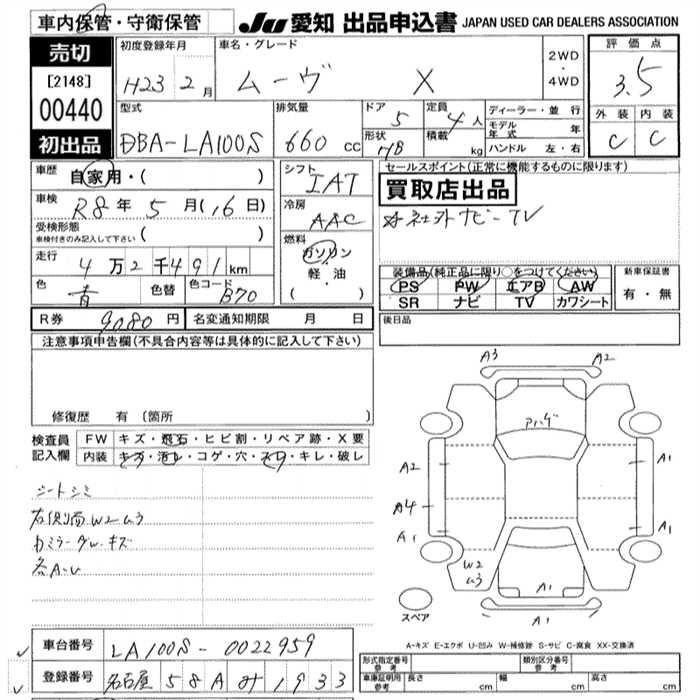 車内保管・守衛保管
JU 愛知 出品申込書 JAPAN USED CAR DEALERS ASSOCIATION
売切
[2148]
00440
初出品
初度登録年月
H23 2月
車名・グレード
ムーヴ X
2WD
・
4WD
評価点
3.5
外装 内装
C C
型式
DBA-LA100S
排気量
660 cc
ドア 5
形状 HB
定員 4人
積載 kg
ディーラー・並行
モデル年式 年
ハンドル 左・右
車歴 自家用・( )
車検 R8年 5月(16日)
受検形態
車検付きのみ記入して下さい ( )
走行 4万2千491km
色 青 色替 色コード B70
シフト
IAT
冷房
AAC
燃料
ガソリン
・
軽・油
( ・ )
セールスポイント(正常に機能するものに限ります)
買取店出品
社外ナビーTV
装備品(純正品に限り○をつけてください)
PS PW エアB AW
SR ナビ TV カワシート
新車保証書
有・無
R券 9080円 名変通知期限 月 日
後日品
注意事項申告欄(不具合内容等は具体的に記入して下さい)
修復歴 有 〔箇所 〕
検査員記入欄
FW キズ・飛石・ヒビ割・リペア跡・X要
内装 キズ・汚レ・コゲ・穴・スレ・キレ・破レ
シートシミ
右側面W2ムラ
カミラーダW.キズ
各A-U
A3 A2
アハゲ
A2 A1
A4
A1 A1
W2
ムラ
A1
A1
スペア
A-キズ E-エクボ U-凹み W-補修跡 S-サビ C-腐食 XX-交換済
車台番号 LA100S-0022959
登録番号 名古屋 58A み 1933
形式指定番号 参考 類別区分番号 参考
車庫証明用 参考 長さ cm 幅 cm 高さ cm